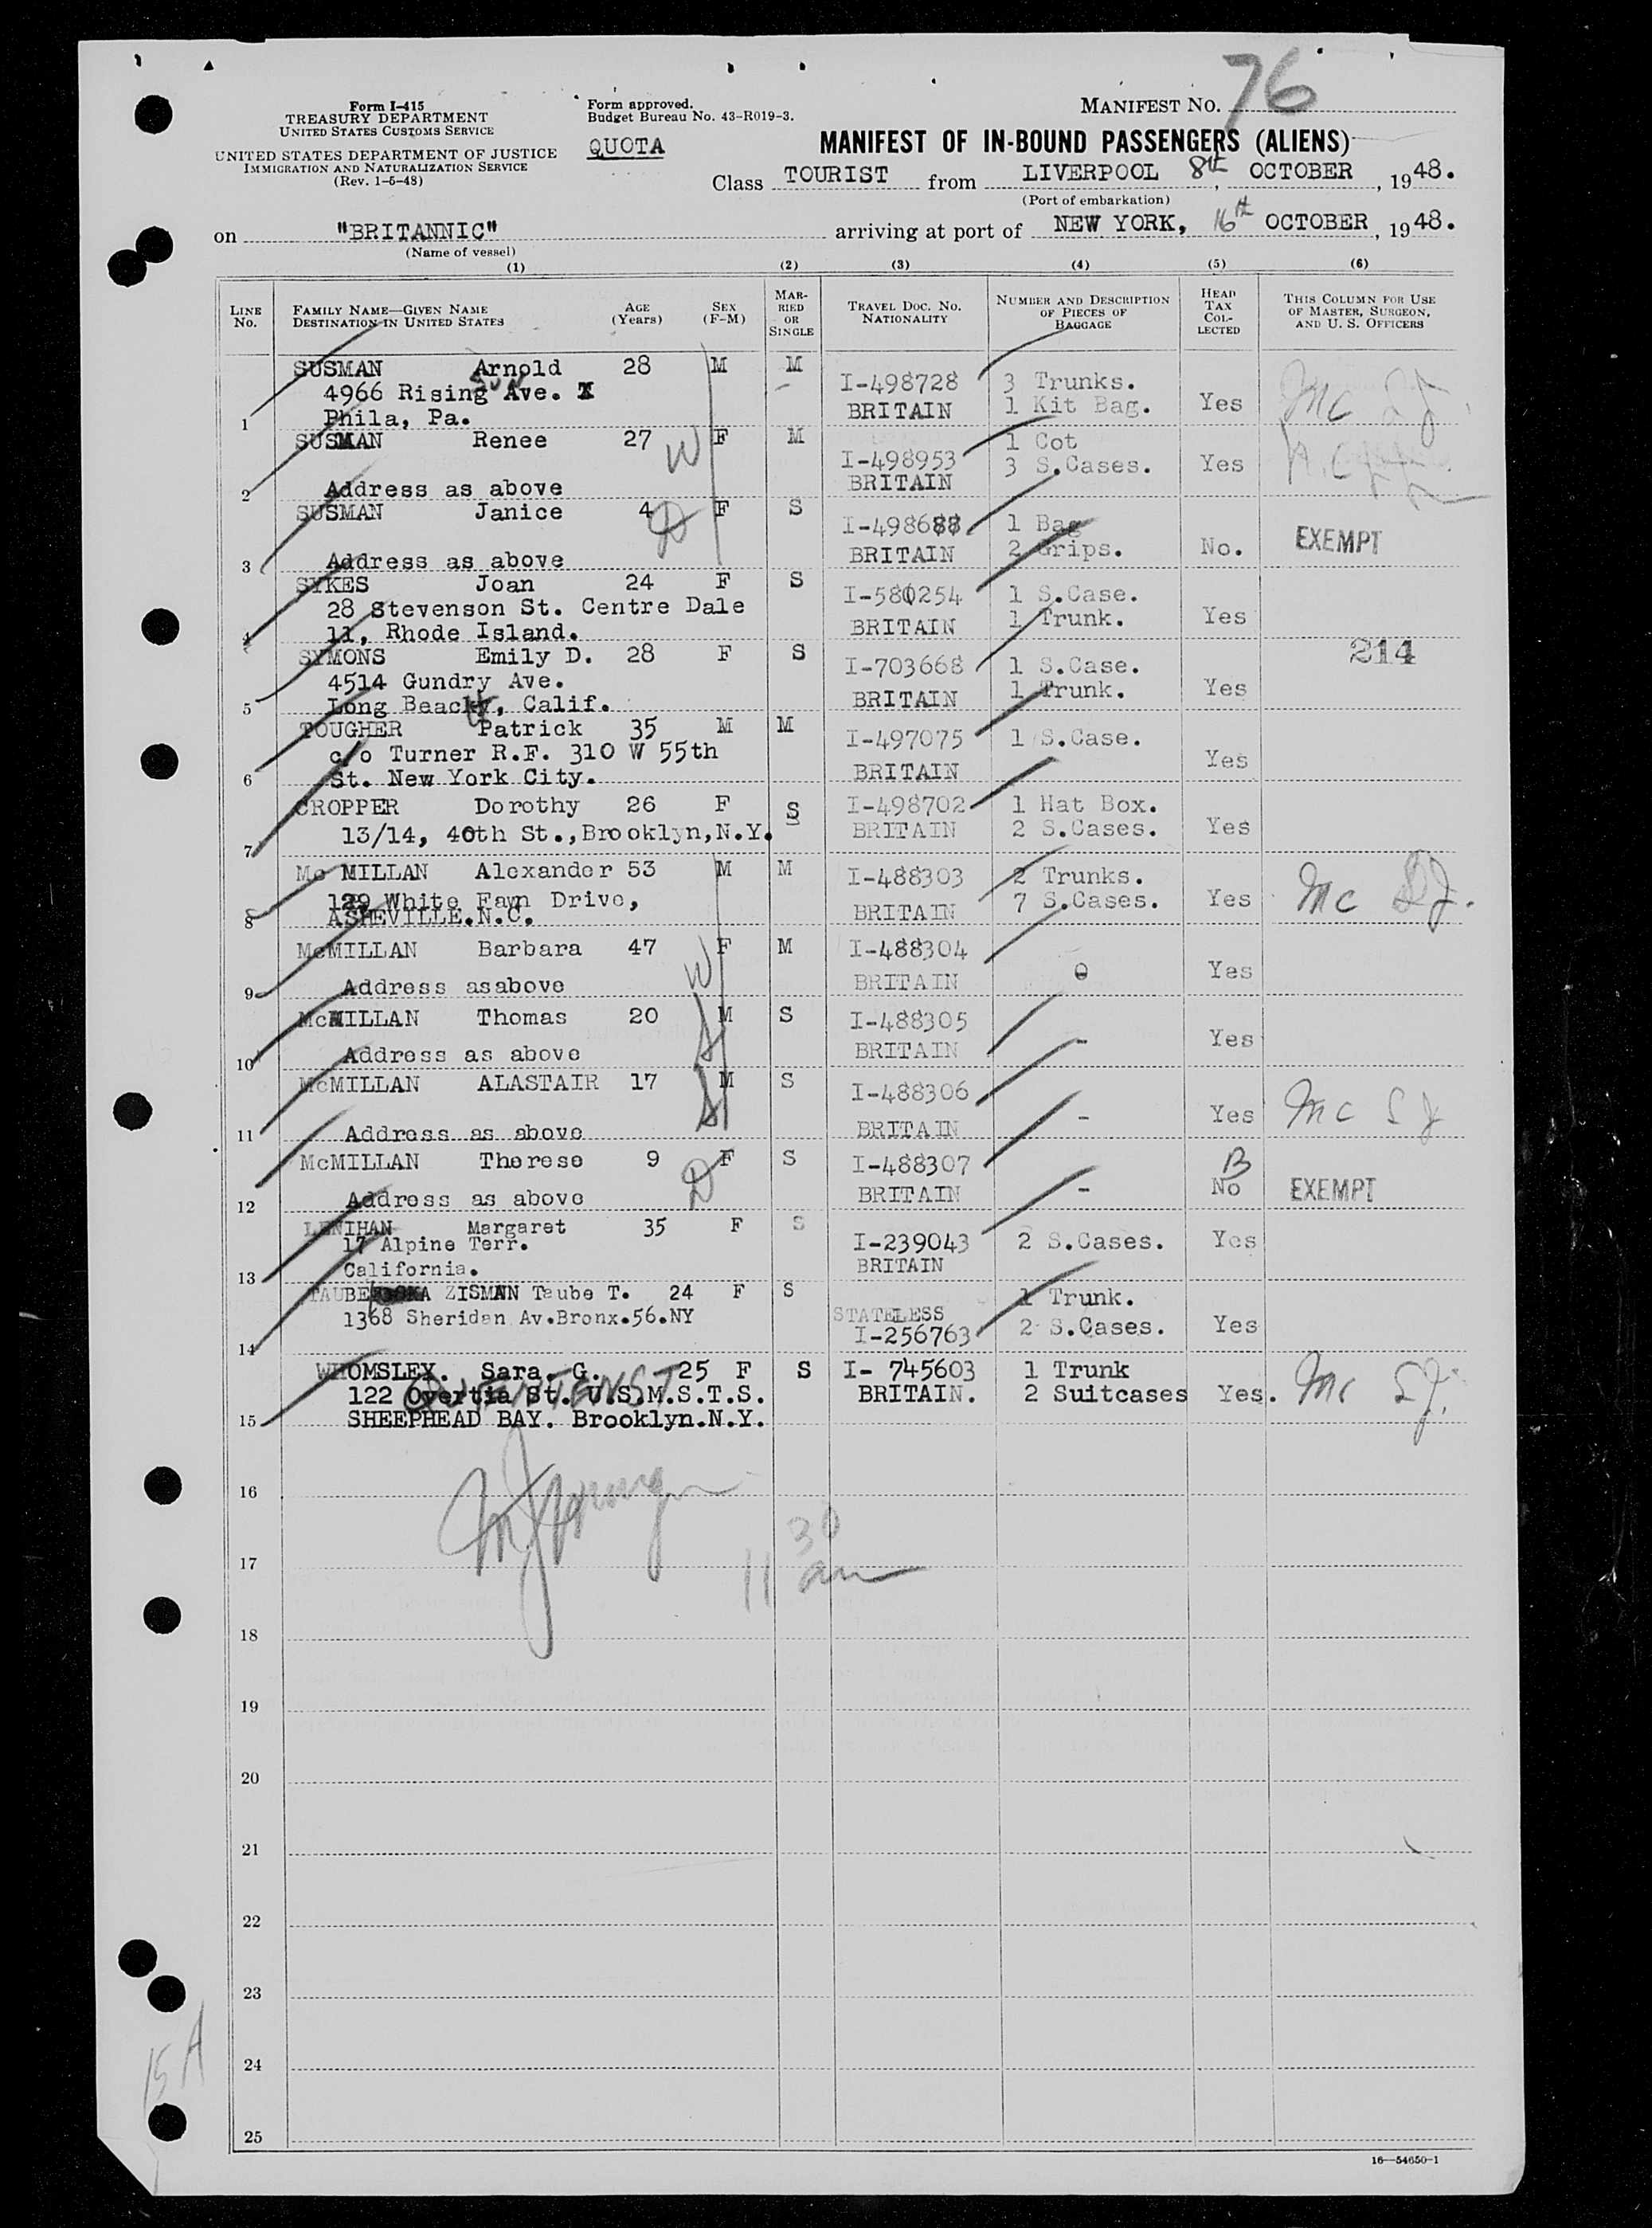 76
Form I-415
TREASURY DEPARTMENT
UNITED STATES CUSTOMS SERVICE
UNITED STATES DEPARTMENT OF JUSTICE
IMMIGRATION AND NATURALIZATION SERVICE
(Rev. 1-5-48)
Form approved.
Budget Bureau No. 43-R019-3.
QUOTA
MANIFEST NO.
MANIFEST OF IN-BOUND PASSENGERS (ALIENS)
Class TOURIST from LIVERPOOL 8th, OCTOBER, 1948.
(Port of embarkation)
on "BRITANNIC" arriving at port of NEW YORK, 16th OCTOBER, 1948.
(Name of vessel)
(1) (2) (3) (4) (5) (6)
LINE No. FAMILY NAME—GIVEN NAME DESTINATION IN UNITED STATES AGE (Years) SEX (F-M) MARRIED OR SINGLE TRAVEL DOC. NO. NATIONALITY NUMBER AND DESCRIPTION OF PIECES OF BAGGAGE HEAD TAX COLLECTED THIS COLUMN FOR USE OF MASTER, SURGEON, AND U. S. OFFICERS
SUSMAN Arnold 28 M M I-498728 3 Trunks.
4966 Rising SUN Ave. BRITAIN 1 Kit Bag. Yes
1 Phila, Pa.
SUSMAN Renee 27 W F M I-498953 1 Cot
BRITAIN 3 S.Cases. Yes
2 Address as above
SUSMAN Janice 4 D F S I-498688 1 Bag
BRITAIN 2 Grips. No. EXEMPT
3 Address as above
SYKES Joan 24 F S I-580254 1 S.Case.
28 Stevenson St. Centre Dale BRITAIN 1 Trunk. Yes
4 11, Rhode Island.
214
SYMONS Emily D. 28 F S I-703668 1 S.Case.
4514 Gundry Ave. BRITAIN 1 Trunk. Yes
5 Long Beach, Calif.
TOUGHER Patrick 35 M M I-497075 1 S.Case.
c/o Turner R.F. 310 W 55th BRITAIN Yes
6 St. New York City.
CROPPER Dorothy 26 F S I-498702 1 Hat Box.
7 13/14, 40th St.,Brooklyn,N.Y. BRITAIN 2 S.Cases. Yes
Mc MILLAN Alexander 53 M M I-488303 2 Trunks.
129 White Fawn Drive, BRITAIN 7 S.Cases. Yes Mc
8 ASHEVILLE.N.C.
McMILLAN Barbara 47 W F M I-488304
9 Address asabove BRITAIN 0 Yes
McMILLAN Thomas 20 M S I-488305
10 Address as above BRITAIN - Yes
McMILLAN ALASTAIR 17 M S I-488306
11 Address as above BRITAIN - Yes Mc S J
McMILLAN Therese 9 D F S I-488307 B
12 Address as above BRITAIN - No EXEMPT
LENIHAN Margaret 35 F S I-239043 2 S.Cases. Yes
17 Alpine Terr. BRITAIN
13 California.
ZISMAN Taube T. 24 F S STATELESS 1 Trunk.
14 1368 Sheridan Av.Bronx.56.NY I-256763 2 S.Cases. Yes
WHOMSLEY. Sara. G. 25 F S I- 745603 1 Trunk
122 St. U.S.M.S.T.S. BRITAIN. 2 Suitcases Yes. Mc SJ.
15 SHEEPHEAD BAY. Brooklyn.N.Y.
16
11 30 am
17
18
19
20
21
22
23
24
15A
25
16—54650-1